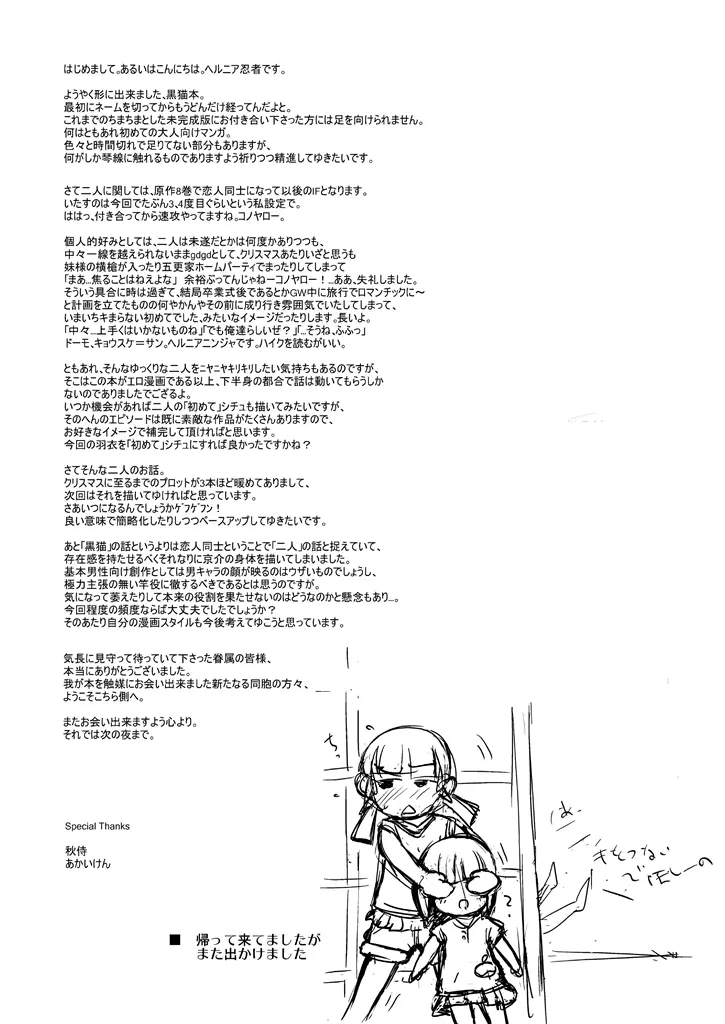 はじめまして。あるいはこんにちは。ヘルニア忍者です。
ようやく形に出来ました、黒猫本。
最初にネームを切ってからもうどんだけ経ってんだよと。
これまでのちまちまとした未完成版にお付き合い下さった方には足を向けられません。
何はともあれ初めての大人向けマンガ。
色々と時間切れで足りてない部分もありますが、
何がしか琴線に触れるものでありますよう祈りつつ精進してゆきたいです。
さて二人に関しては、原作8巻で恋人同士になって以後のIFとなります。
いたすのは今回でたぶん3、4度目ぐらいという私設定で。
ははっ、付き合ってから速攻やってますね。コノヤロー。
個人的好みとしては、二人は未遂だとかは何度かありつつも、
中々一線を越えられないままgdgdとして、クリスマスあたりいざと思うも
妹様の横槍が入ったり五更家ホームパーティでまったりしてしまって
「まあ…焦ることはねえよな」　余裕ぶってんじゃねーコノヤロー！…ああ、失礼しました。
そういう具合に時は過ぎて、結局卒業式後であるとかGW中に旅行でロマンチックに～
と計画を立てたものの何やかんやその前に成り行き雰囲気でいたしてしまって、
いまいちキまらない初めてでした、みたいなイメージだったりします。長いよ。
「中々…上手くはいかないものね」「でも俺達らしいぜ？」「…そうね、ふふっ」
ドーモ、キョウスケ＝サン。ヘルニアニンジャです。ハイクを読むがいい。
ともあれ、そんなゆっくりな二人をﾆﾔﾆﾔｷﾘｷﾘしたい気持ちもあるのですが、
そこはこの本がエロ漫画である以上、下半身の都合で話は動いてもらうしか
ないのでありましたでござるよ。
いつか機会があれば二人の「初めて」シチュも描いてみたいですが、
そのへんのエピソードは既に素敵な作品がたくさんありますので、
お好きなイメージで補完して頂ければと思います。
今回の羽衣を「初めて」シチュにすれば良かったですかね？
さてそんな二人のお話。
クリスマスに至るまでのプロットが3本ほど暖めてありまして、
次回はそれを描いてゆければと思っています。
さあいつになるんでしょうかｹﾞﾌｹﾞﾌﾝ！
良い意味で簡略化したりしつつペースアップしてゆきたいです。
あと「黒猫」の話というよりは恋人同士ということで「二人」の話と捉えていて、
存在感を持たせるべくそれなりに京介の身体を描いてしまいました。
基本男性向け創作としては男キャラの顔が映るのはウザいものでしょうし、
極力主張の無い竿役に徹するべきであるとは思うのですが。
気になって萎えたりして本来の役割を果たせないのはどうなのかと懸念もあり…。
今回程度の頻度ならば大丈夫でしたでしょうか？
そのあたり自分の漫画スタイルも今後考えてゆこうと思っています。
気長に見守って待っていて下さった眷属の皆様、
本当にありがとうございました。
我が本を触媒にお会い出来ました新たなる同胞の方々、
ようこそこちら側へ。
またお会い出来ますよう心より。
それでは次の夜まで。
Special Thanks
秋侍
あかいけん
■　帰って来てましたが
また出かけました
？